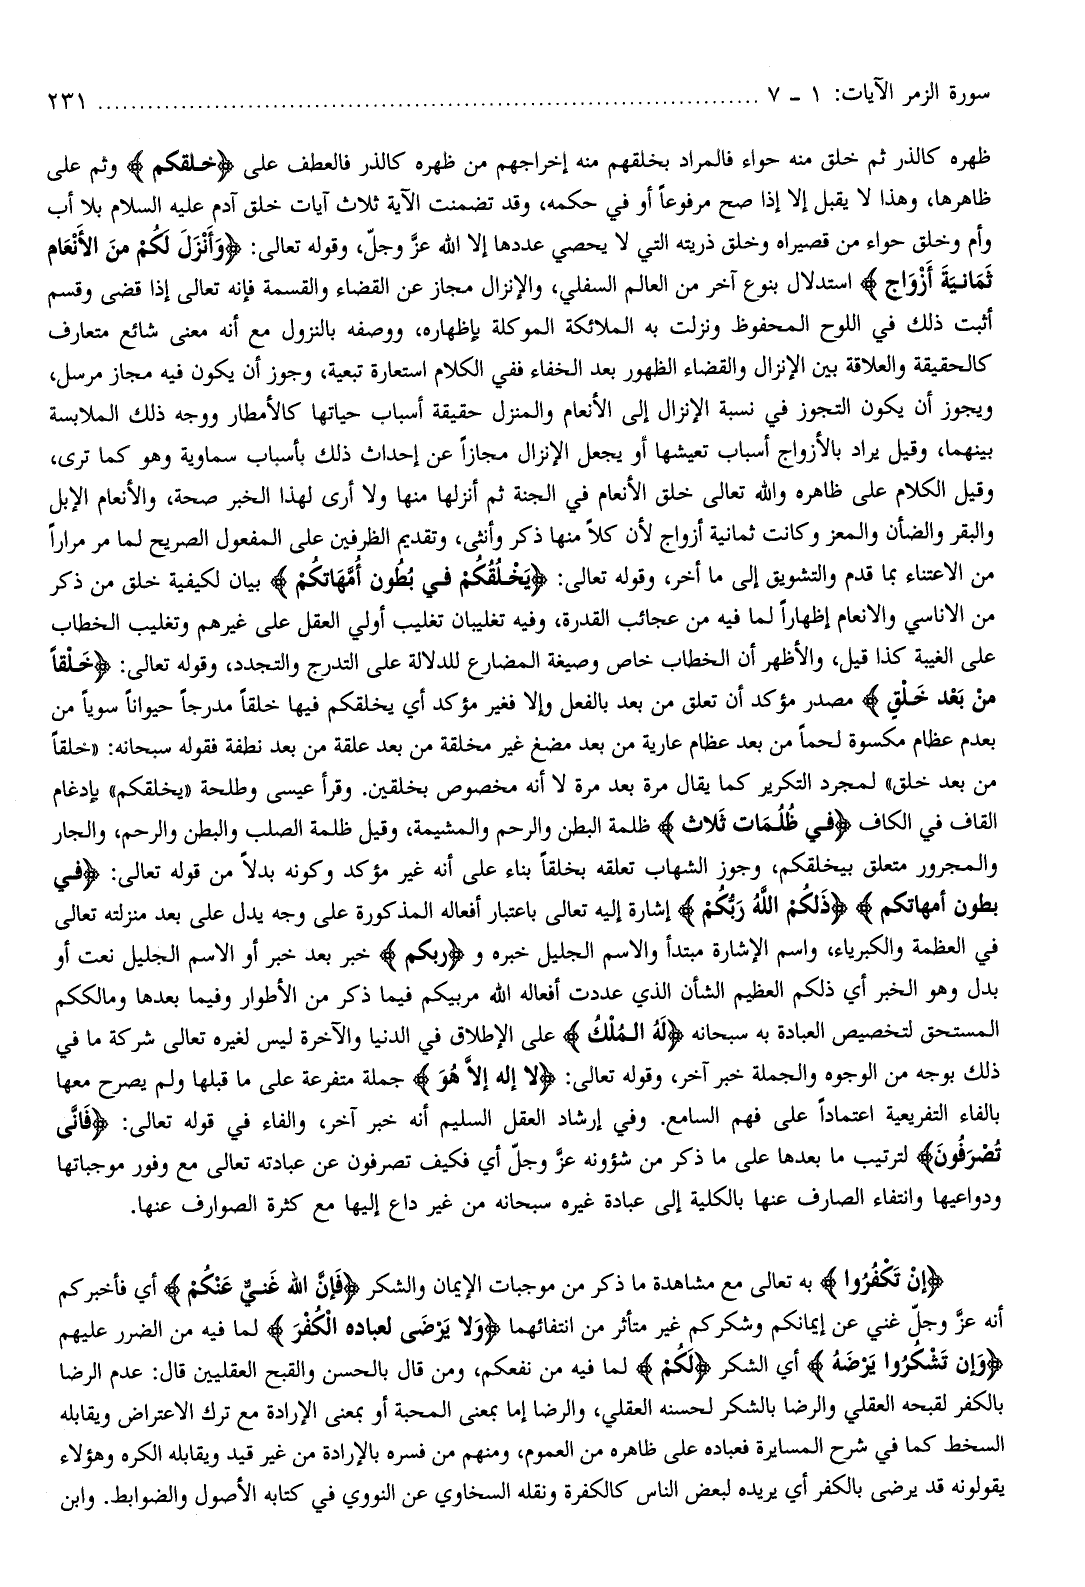 سورة الزمر الآيات: ١ ـ ٧ ................................................................................ ٢٣١
ظهره كالذر ثم خلق منه حواء فالمراد بخلقهم منه إخراجهم من ظهره كالذر فالعطف على ﴿خلقكم﴾ وثم على
ظاهرها، وهذا لا يقبل إلا إذا صح مرفوعاً أو في حكمه، وقد تضمنت الآية ثلاث آيات خلق آدم عليه السلام بلا أب
وأم وخلق حواء من قصيراه وخلق ذريته التي لا يحصي عددها إلا الله عزَّ وجلّ، وقوله تعالى: ﴿وَأَنْزَلَ لَكُمْ منَ الأَنْعَام
ثَمَانيَةَ أَزْوَاج﴾ استدلال بنوع آخر من العالم السفلي، والإنزال مجاز عن القضاء والقسمة فإنه تعالى إذا قضى وقسم
أثبت ذلك في اللوح المحفوظ ونزلت به الملائكة الموكلة بإظهاره، ووصفه بالنزول مع أنه معنى شائع متعارف
كالحقيقة والعلاقة بين الإنزال والقضاء الظهور بعد الخفاء ففي الكلام استعارة تبعية، وجوز أن يكون فيه مجاز مرسل،
ويجوز أن يكون التجوز في نسبة الإنزال إلى الأنعام والمنزل حقيقة أسباب حياتها كالأمطار ووجه ذلك الملابسة
بينهما، وقيل يراد بالأزواج أسباب تعيشها أو يجعل الإنزال مجازاً عن إحداث ذلك بأسباب سماوية وهو كما ترى،
وقيل الكلام على ظاهره والله تعالى خلق الأنعام في الجنة ثم أنزلها منها ولا أرى لهذا الخبر صحة، والأنعام الإبل
والبقر والضأن والمعز وكانت ثمانية أزواج لأن كلاً منها ذكر وأنثى، وتقديم الظرفين على المفعول الصريح لما مر مراراً
من الاعتناء بما قدم والتشويق إلى ما أخر، وقوله تعالى: ﴿يَخْلُقُكُمْ في بُطُون أُمَّهَاتكُمْ﴾ بيان لكيفية خلق من ذكر
من الاناسي والانعام إظهاراً لما فيه من عجائب القدرة، وفيه تغليبان تغليب أولي العقل على غيرهم وتغليب الخطاب
على الغيبة كذا قيل، والأظهر أن الخطاب خاص وصيغة المضارع للدلالة على التدرج والتجدد، وقوله تعالى: ﴿خَلْقاً
منْ بَعْد خَلْقٍ﴾ مصدر مؤكد أن تعلق من بعد بالفعل وإلا فغير مؤكد أي يخلقكم فيها خلقاً مدرجاً حيواناً سوياً من
بعدم عظام مكسوة لحماً من بعد عظام عارية من بعد مضغ غير مخلقة من بعد علقة من بعد نطفة فقوله سبحانه: «خلقاً
من بعد خلق» لمجرد التكرير كما يقال مرة بعد مرة لا أنه مخصوص بخلقين. وقرأ عيسى وطلحة «يخلقكم» بإدغام
القاف في الكاف ﴿في ظُلُمَات ثَلاث﴾ ظلمة البطن والرحم والمشيمة، وقيل ظلمة الصلب والبطن والرحم، والجار
والمجرور متعلق بيخلقكم، وجوز الشهاب تعلقه بخلقاً بناء على أنه غير مؤكد وكونه بدلاً من قوله تعالى: ﴿في
بطون أمهاتكم﴾ ﴿ذَلكُمْ اللَّهُ رَبُّكُمْ﴾ إشارة إليه تعالى باعتبار أفعاله المذكورة على وجه يدل على بعد منزلته تعالى
في العظمة والكبرياء، واسم الإشارة مبتدأ والاسم الجليل خبره و ﴿ربكم﴾ خبر بعد خبر أو الاسم الجليل نعت أو
بدل وهو الخبر أي ذلكم العظيم الشأن الذي عددت أفعاله الله مربيكم فيما ذكر من الأطوار وفيما بعدها ومالككم
المستحق لتخصيص العبادة به سبحانه ﴿لَهُ المُلْكُ﴾ على الإطلاق في الدنيا والآخرة ليس لغيره تعالى شركة ما في
ذلك بوجه من الوجوه والجملة خبر آخر، وقوله تعالى: ﴿لا إله إلاَّ هُوَ﴾ جملة متفرعة على ما قبلها ولم يصرح معها
بالفاء التفريعية اعتماداً على فهم السامع. وفي إرشاد العقل السليم أنه خبر آخر، والفاء في قوله تعالى: ﴿فَأنَّى
تُصْرَفُونَ﴾ لترتيب ما بعدها على ما ذكر من شؤونه عزَّ وجلّ أي فكيف تصرفون عن عبادته تعالى مع وفور موجباتها
ودواعيها وانتفاء الصارف عنها بالكلية إلى عبادة غيره سبحانه من غير داع إليها مع كثرة الصوارف عنها.
﴿إنْ تَكْفُرُوا﴾ به تعالى مع مشاهدة ما ذكر من موجبات الإيمان والشكر ﴿فَإنَّ الله غَنيٌّ عَنْكُمْ﴾ أي فأخبركم
أنه عزَّ وجلّ غني عن إيمانكم وشكركم غير متأثر من انتفائهما ﴿وَلا يَرْضَى لعباده الْكُفْرَ﴾ لما فيه من الضرر عليهم
﴿وَإن تَشْكُرُوا يَرْضَهُ﴾ أي الشكر ﴿لَكُمْ﴾ لما فيه من نفعكم، ومن قال بالحسن والقبح العقليين قال: عدم الرضا
بالكفر لقبحه العقلي والرضا بالشكر لحسنه العقلي، والرضا إما بمعنى المحبة أو بمعنى الإرادة مع ترك الاعتراض ويقابله
السخط كما في شرح المسايرة فعباده على ظاهره من العموم، ومنهم من فسره بالإرادة من غير قيد ويقابله الكره وهؤلاء
يقولونه قد يرضى بالكفر أي يريده لبعض الناس كالكفرة ونقله السخاوي عن النووي في كتابه الأصول والضوابط. وابن